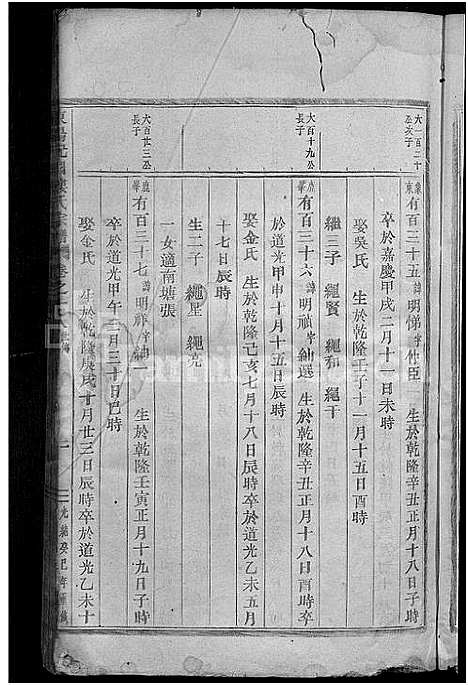 大一百二十
公次子
有百三十五 諱明悌字仕臣 生於乾隆辛丑正月十八日子時
卒於嘉慶甲戌二月十一日未時
娶吳氏 生於乾隆壬子十一月十五日酉時
繼三子 繩賢 繩和 繩于
大百十九公
長子
有百三十六 諱明禎字紳選 生於乾隆辛丑正月十八日酉時卒
於道光甲申十月十五日辰時
娶金氏 生於乾隆己亥七月十八日辰時卒於道光乙未五月
十七日辰時
生二子 繩星 繩亮
一女適南塘張
大百廿三公
長子
有百三十七 諱明祥字 一 生於乾隆壬寅正月十九日子時
卒於道光甲午三月三十日巳時
娶金氏 生於乾隆庚戌十月廿三日辰時卒於道光乙未十
氏宗譜 卷之
光緒癸巳年重修